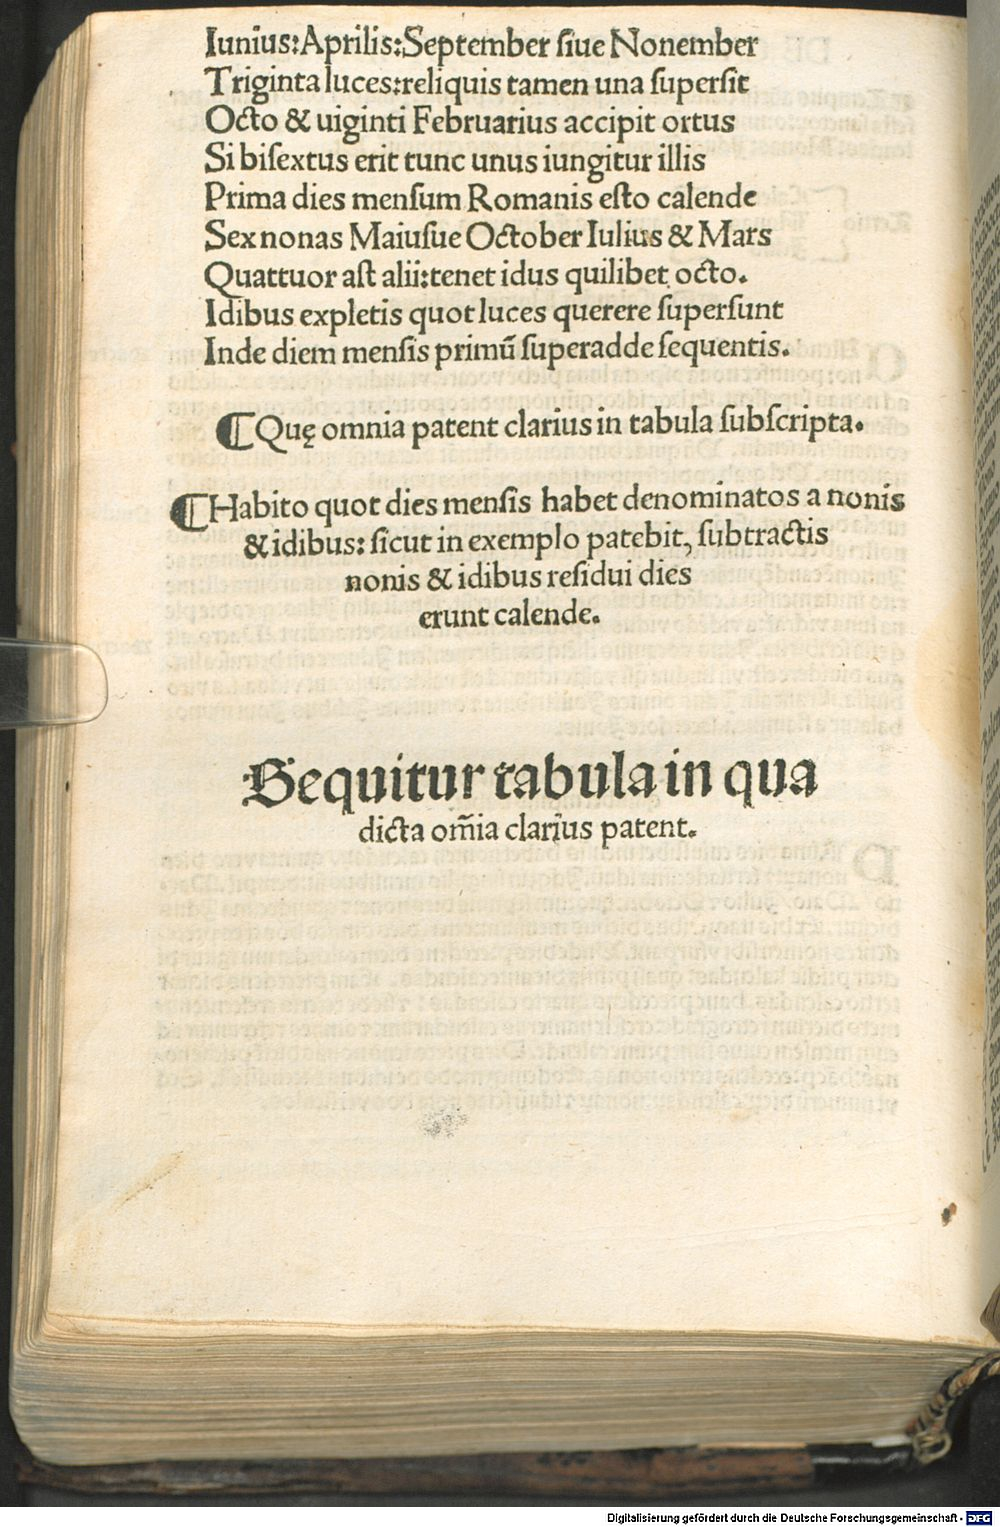 Iunius:Aprilis:September ſiue Nonember
Triginta luces:reliquis tamen una ſuperſit
Octo & uiginti Februarius accipit ortus
Si biſextus erit tunc unus iungitur illis
Prima dies menſum Romanis eſto calende
Sex nonas Maiuſue October Iulius & Mars
Quattuor aſt alii:tenet idus quilibet octo.
Idibus expletis quot luces querere ſuperſunt
Inde diem menſis primū ſuperadde ſequentis.
¶Quę omnia patent clarius in tabula ſubſcripta.
¶Habito quot dies menſis habet denominatos a nonis
& idibus: ſicut in exemplo patebit, ſubtractis
nonis & idibus reſidui dies
erunt calende.
Sequitur tabula in qua
dicta om̄ia clarius patent.
Digitalisierung gefördert durch die Deutsche Forschungsgemeinschaft - DFG